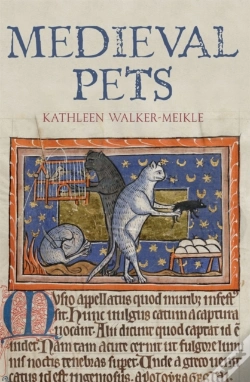 MEDIEVAL
PETS
KATHLEEN WALKER-MEIKLE
Musio appellatus quod murib; infest
sit. Hunc uulgus catum a captura
uocant. Alii dicunt quod captat id ē
uidet. Nam tam acute cernit ut fulgore lumi
nis noctis tenebras superet. Unde a greco uenit
catus id est ingeniosus